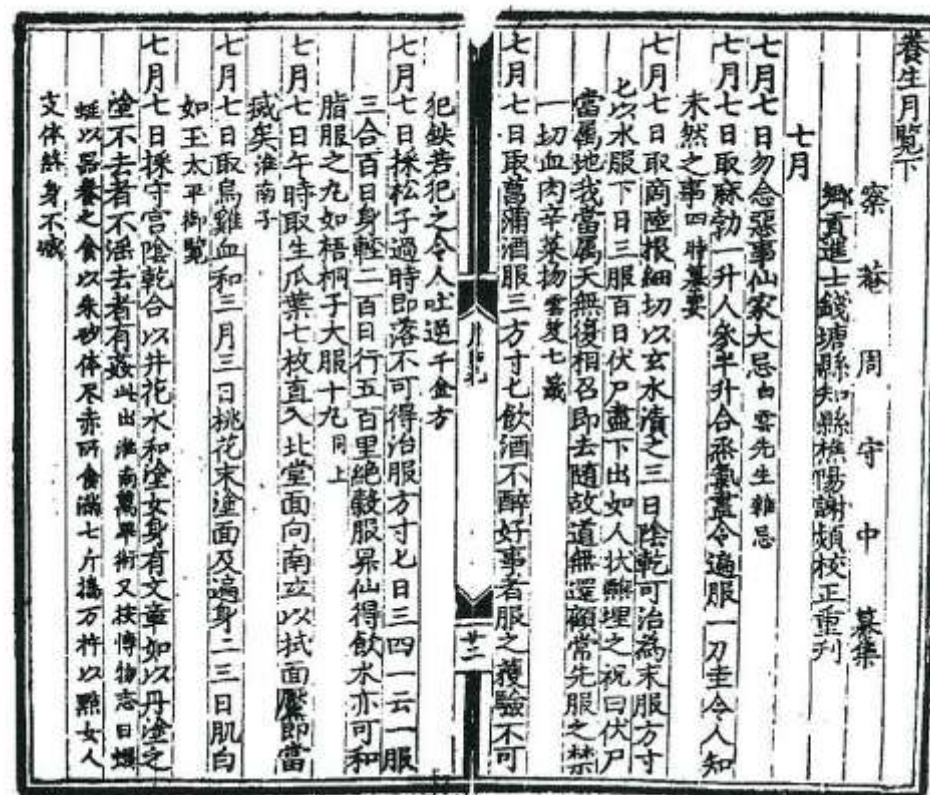 養生月覽下
窠菴周守中纂集
鄉貢進士錢塘縣知縣樵陽謝熲校正重刋
七月
七月七日勿念惡事仙家大忌白雲先生雜忌
七月七日取麻勃一升人參半升合蒸氣盡令遍服一刀圭令人知
未然之事四時纂要
七月七日取商陸根細切以玄水漬之三日陰乾可治為末服方寸
匕以水服下日三服百日伏尸盡下出如人狀醮埋之祝曰伏尸
當属地我當属天無復相召即去隨故道無還顧常先服之禁
一切血肉辛菜物雲笈七籤
七月七日取菖蒲酒服三方寸匕飲酒不醉好事者服之獲驗不可
月覽
廿二
犯鉄若犯之令人吐逆千金方
七月七日採松子過時即落不可得治服方寸匕日三四一云一服
三合百日身輕二百日行五百里絶穀服昇仙得飲水亦可和
脂服之丸如梧桐子大服十丸同上
七月七日午時取生瓜葉七枚直入北堂面向南立以拭面靨即當
滅矣淮南子
七月七日取烏雞血和三月三日桃花末塗面及遍身二三日肌白
如玉太平御覽
七月七日採守宫陰乾合以井花水和塗女身有文章如以丹塗之
塗不去者不淫去者有姦此出淮南萬畢術又按博物志曰蝘
蜓以器養之食以朱砂体尽赤所食滿七斤搗万杵以點女人
支体終身不滅